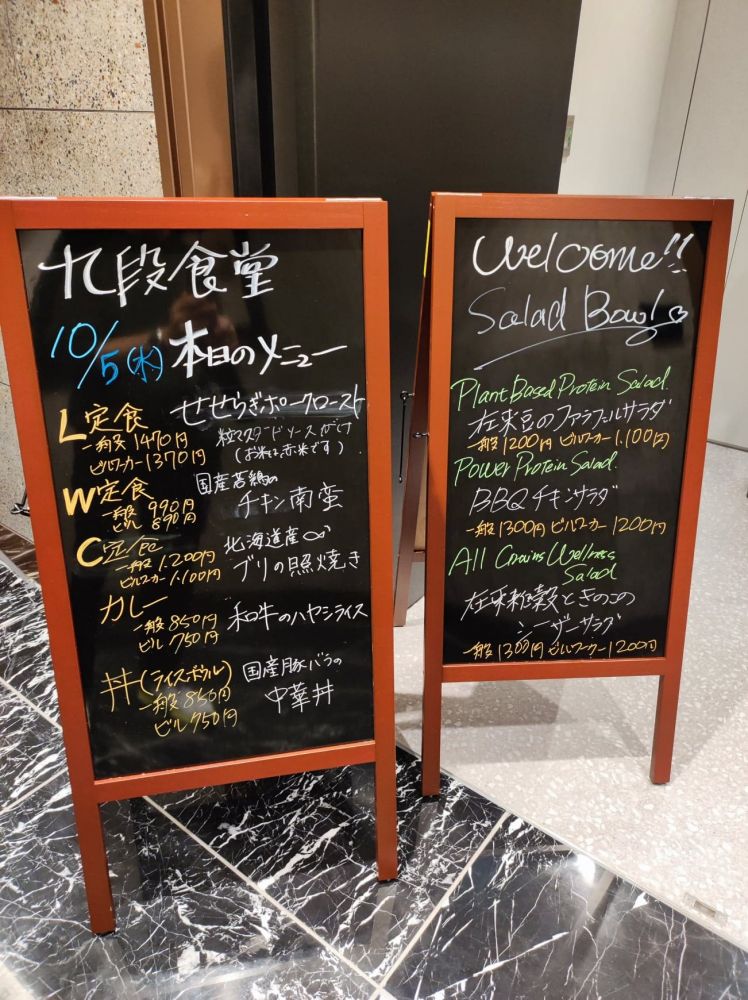 九段食堂
10/5(水) 本日のメニュー
L定食 せせらぎポークロースト
一般 1470円 粒マスタードソースがけ
ビルワーカー 1370円 (お米は赤米です)
W定食 国産若鶏の
一般 990円 チキン南蛮
ビル 890円
C定食 北海道産
一般 1.200円 ブリの照焼き
ビルワーカー 1.100円
カレー 和牛のハヤシライス
一般 850円
ビル 750円
丼(ライスボウル) 国産豚バラの
一般 850円 中華丼
ビル 750円
Welcome!!
Salad Bowl
Plant Based Protein Salad.
在来豆のファラフェルサラダ
一般 1200円 ビルワーカー 1.100円
Power Protein Salad.
BBQチキンサラダ
一般 1300円 ビルワーカー 1200円
All Grains Wellness
Salad
在来雑穀ときのこの
シーザーサラダ
一般 1300円 ビルワーカー 1200円